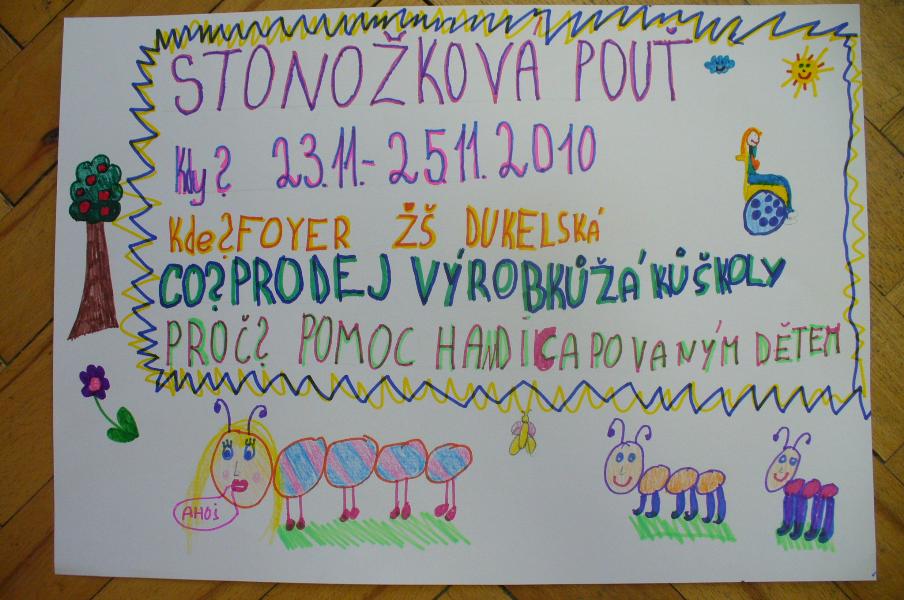 STONOŽKOVA POUŤ
Kdy? 23.11.-25.11.2010
Kde? FOYER ŽŠ DUKELSKÁ
CO? PRODEJ VÝROBKŮ ŽÁKŮ ŠKOLY
PROČ? POMOC HANDICAPOVANÝM DĚTEM
AHOJ